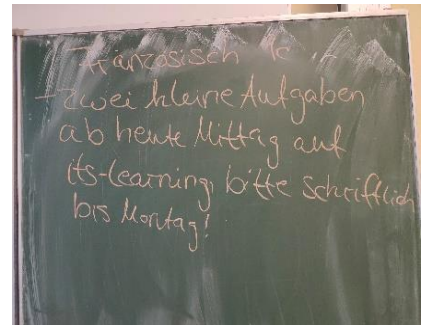 Französisch 1c
- Zwei kleine Aufgaben
ab heute Mittag auf
its-learning, bitte schriftlich
bis Montag!